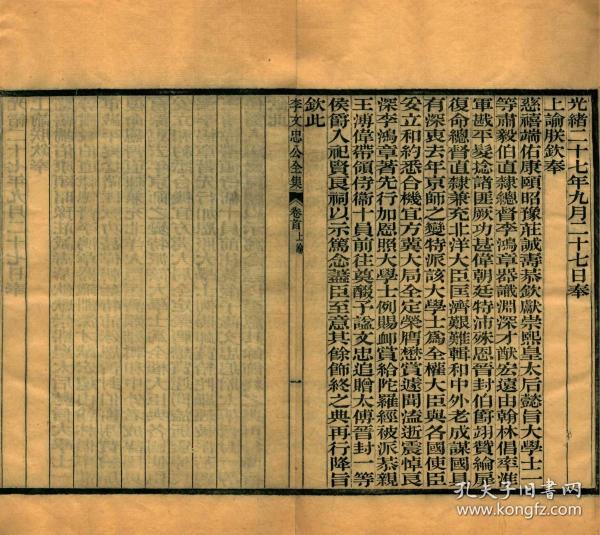 光緒二十七年九月二十七日奉
上諭朕欽奉
慈禧端佑康頤昭豫莊誠壽恭欽獻崇熙皇太后懿旨大學士一
等肅毅伯直隸總督李鴻章器識淵深才猷宏遠由翰林倡率淮
軍戡平髮捻諸匪厥功甚偉朝廷特沛殊恩晉封伯爵翊贊綸扉
復命總督直隸兼充北洋大臣匡濟艱難輯和中外老成謀國具
有深衷去年京師之變特派該大學士為全權大臣與各國使臣
妥立和約悉合機宜方冀大局全定榮膺懋賞遽聞溘逝震悼良
深李鴻章著先行加恩照大學士例賜卹賞給陀羅經被派恭親
王溥偉帶領侍衛十員前往奠醊予諡文忠追贈太傅晉封一等
侯爵入祀賢良祠以示篤念藎臣至意其餘飾終之典再行降旨
欽此
李文忠公全集
卷首 上諭
一
孔夫子旧书网
www.kongfz.com